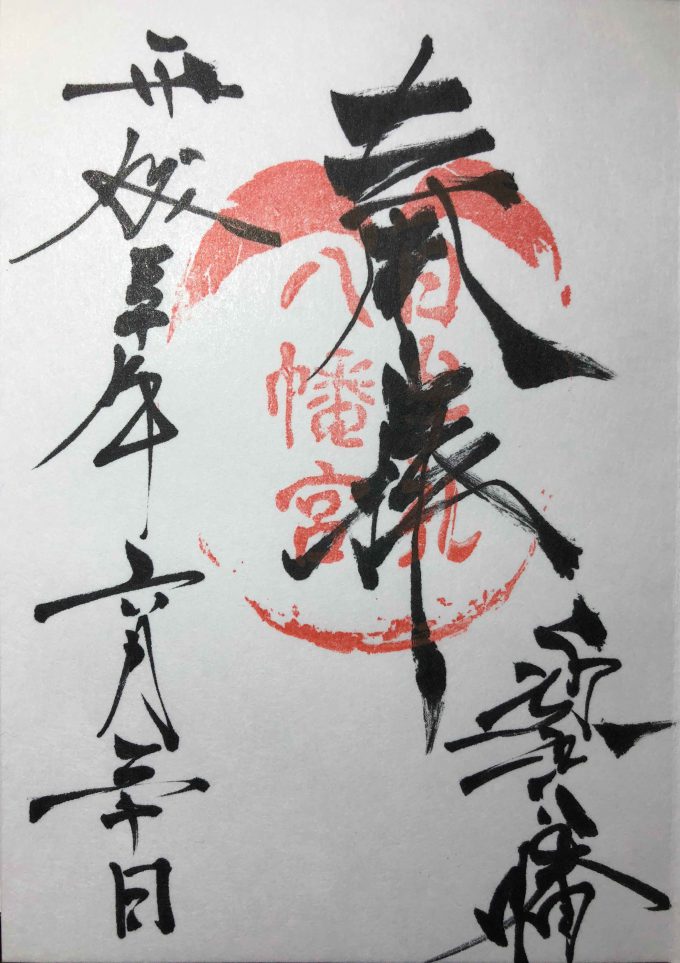 八幡
奉拝
八幡宮
平成三十年六月三十日